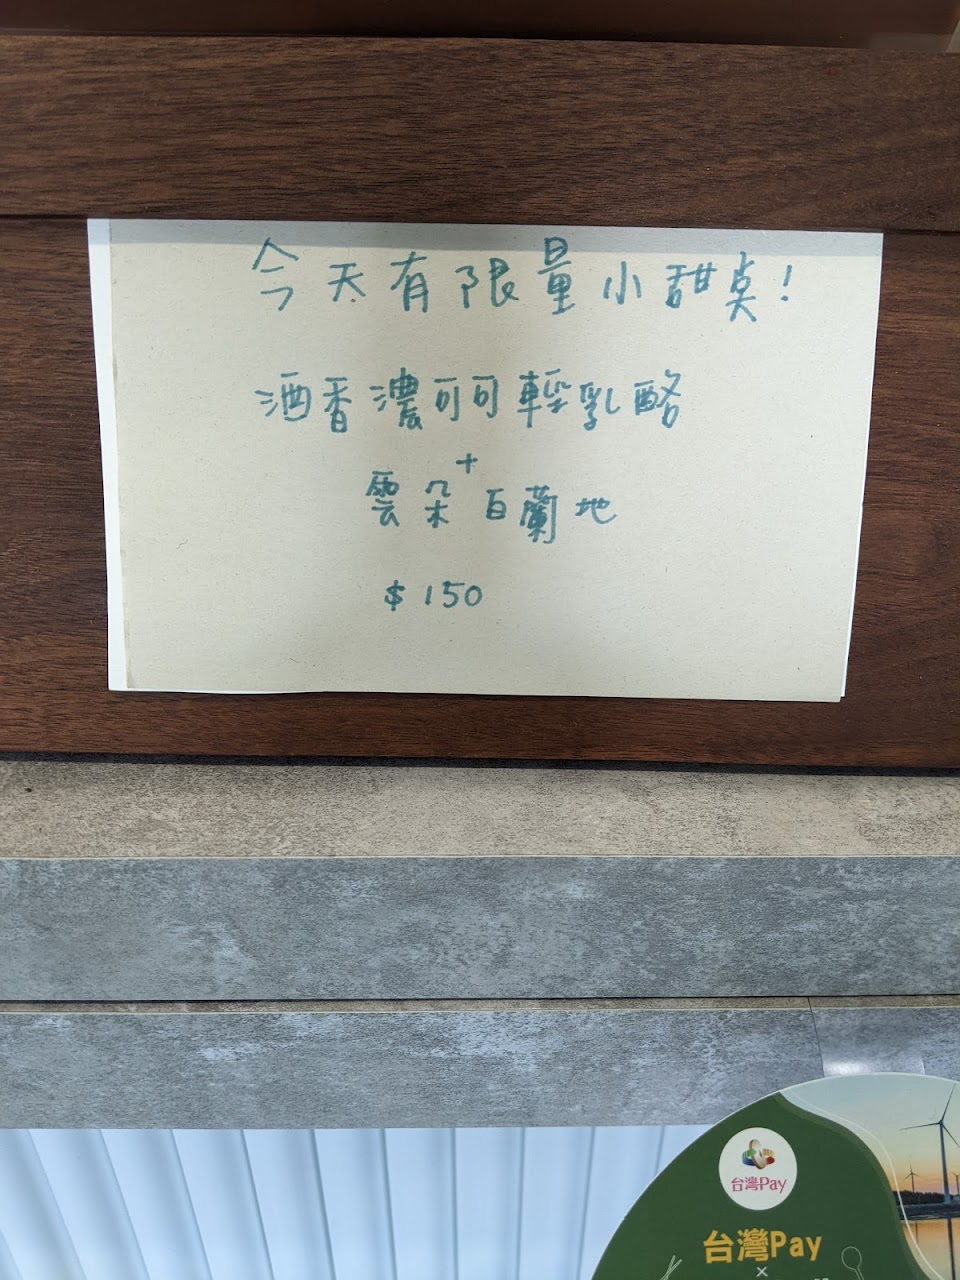 今天有限量小甜點!
酒香濃可可輕乳酪
+
雲朵白蘭地
$150
台灣Pay
台灣Pay
×